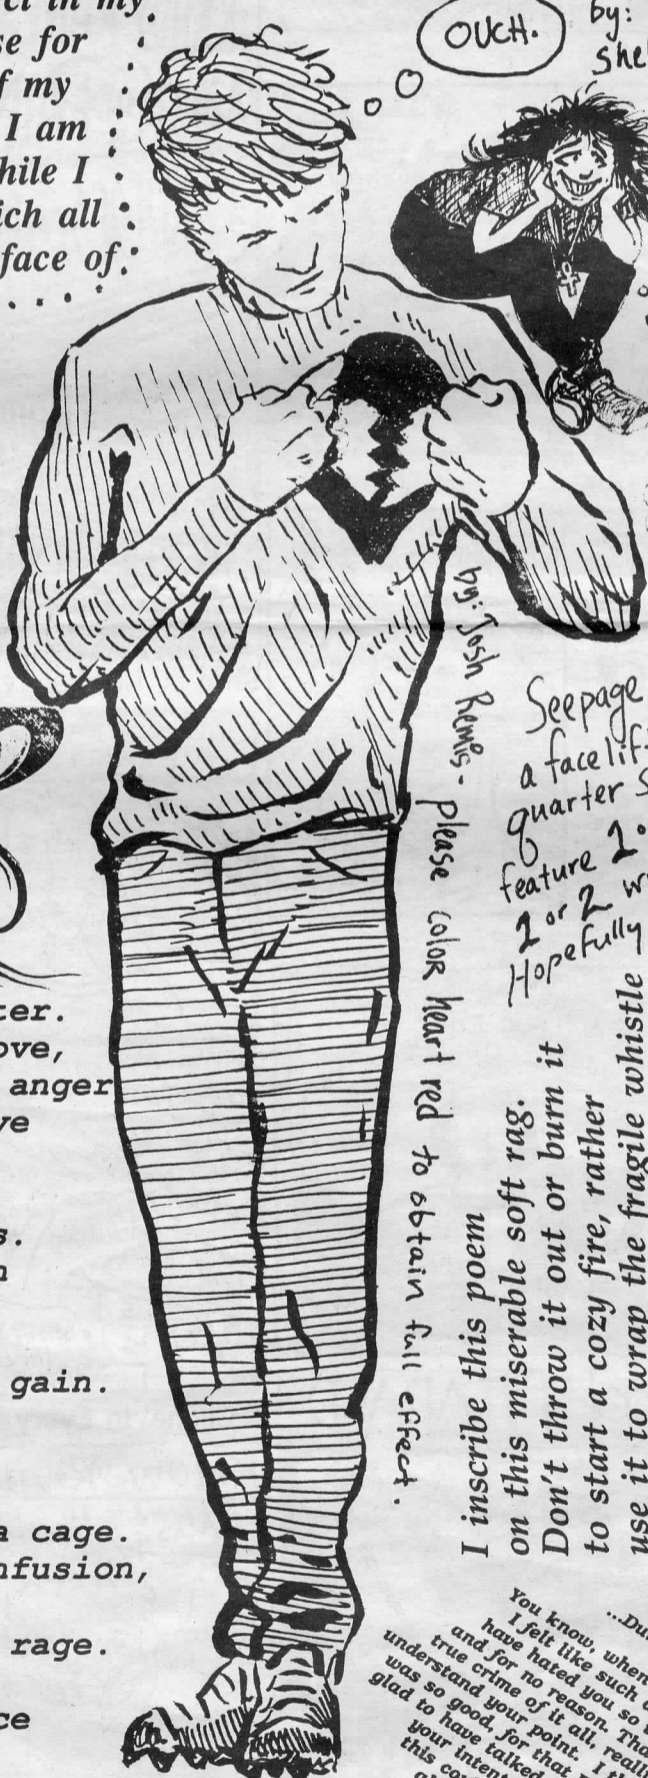 in my
se for
f my
I am
hile I
ich all
face of
OUCH.
by:
by: Josh Remis - please color heart red to obtain full effect.
See page
a facelif
quarter s
feature 1.
1 or 2 w
Hopefully
ter.
ove,
anger
ve
s.
n
gain.
a cage.
nfusion,
rage.
ce
I inscribe this poem
on this miserable soft rag.
Don't throw it out or burn it
to start a cozy fire, rather
use it to wrap the fragile whistle
...Du
You know, when
I felt like such a
have hated you so
and for no reason. Tha
true crime of it all, really
understand your point. I th
was so good, for that
glad to have talked
your intent
this cou